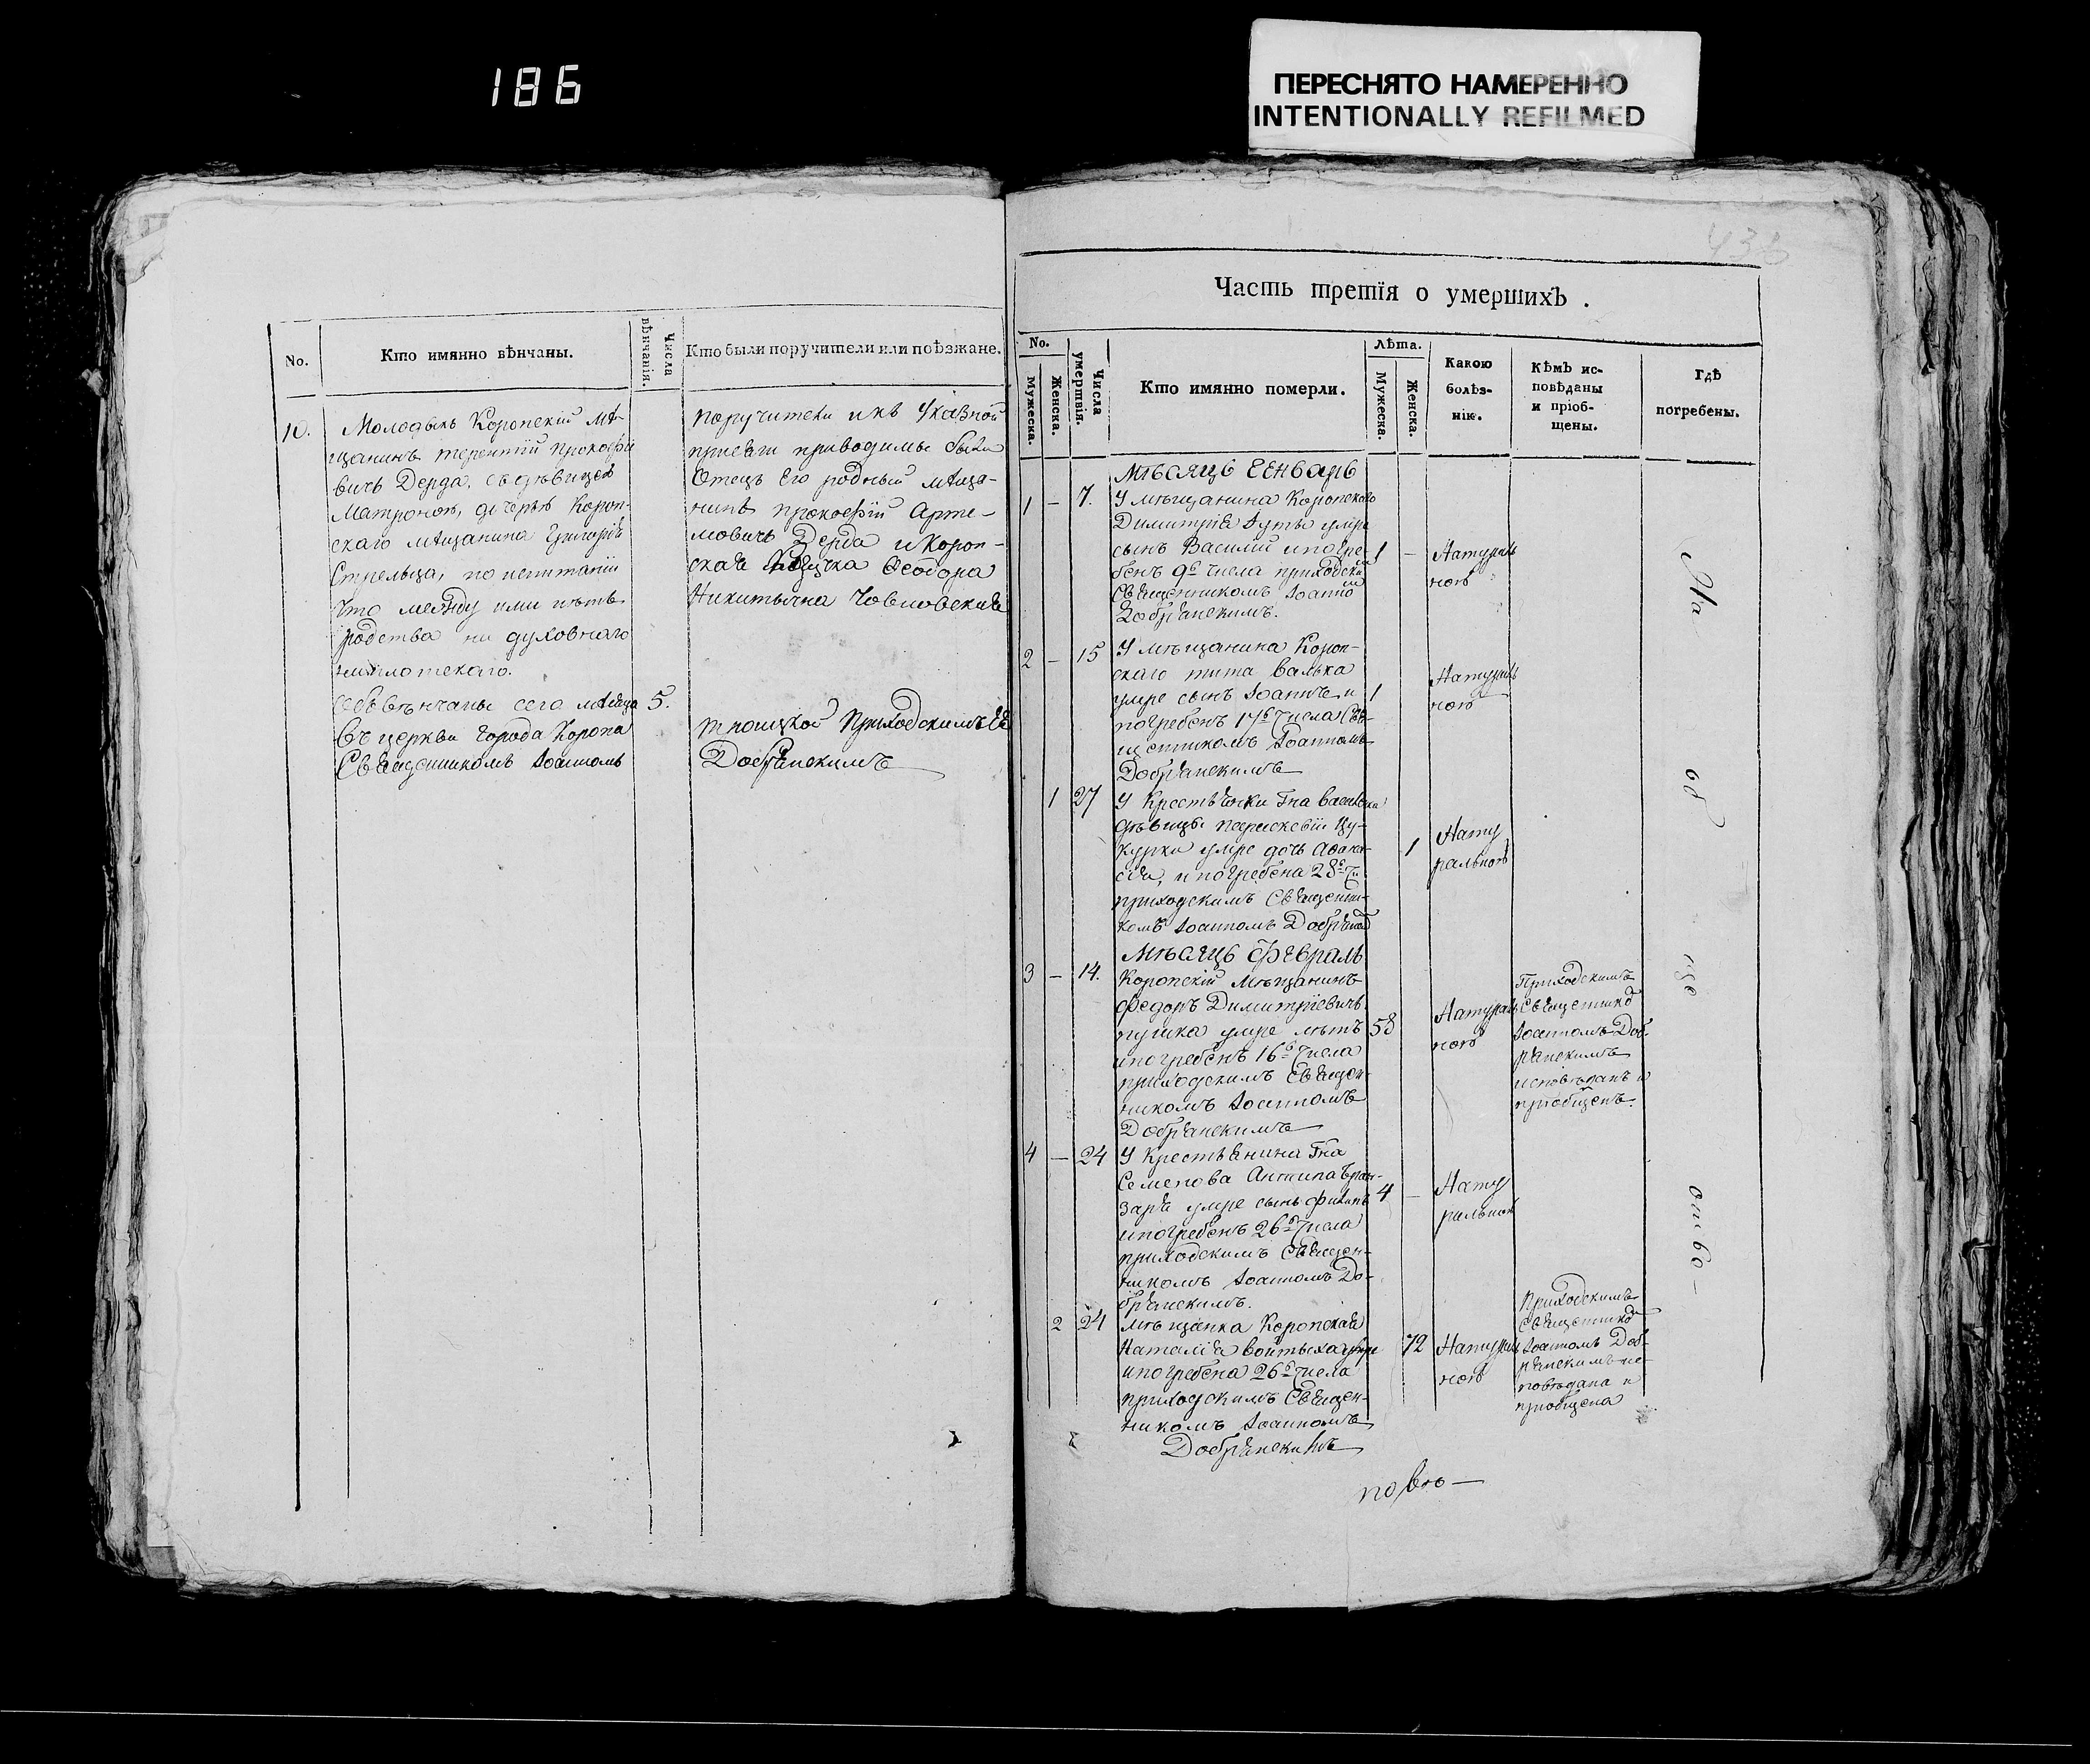 186
ПЕРЕСНЯТО НАМЕРЕННО
INTENTIONALLY REFILMED
No.
Кто имянно вѣнчаны.
Числа вѣнчанія.
Кто были поручители или поѣзжане.
10.
Молодыкъ Коропскій мѣ-
щанинъ Терентій Прокофіе
вичъ Дерда, съ дѣвицею
Матроною, дочерью Короп-
скаго мѣщанина Григорія
Стрельца, по испитаніи
что между ими нѣтъ
родства ни духовнаго
ни плотскаго.
вѣнчаны сего мѣсяца
5.
въ церкви города Коропа
Священникомъ Іоанномъ
поручители и къ указной
присяги приводимы были
Отецъ его родный мѣща-
нинъ Прокофій Арте-
мовичъ Дерда и Короп-
ская Феодора
Никитична
Троицкой Приходскимъ ея
Добрянскимъ
Часть третія о умершихъ.
No.
Мужеска.
Женска.
Числа умертвія.
Кто имянно померли.
Лѣта.
Мужеска.
Женска.
Какою
болѣз-
нію.
Кѣмъ ис-
повѣданы
и пріоб-
щены.
Гдѣ
погребены.
Мѣсяць Генварь
1 — 7.
У мѣщанина Коропскаго
Димитрія умре
сынъ Василій и погре-
бенъ 9ь числа приходским
Священникомъ Іоанно
Добрянскимъ.
1 —
Натураль
ною
2 — 15
У мѣщанина Короп-
скаго Тита Валька
умре сынъ Іоаннъ и
погребенъ 17ь числа Свя-
щенникомъ Іоанномъ
Добрянскимъ
1
Натураль
ною
1 27
У Крестьянки Гна
дѣвицы Параскевіи Цу-
курки умре дочь Афана-
сія, и погребена 28ь чи
приходскимъ Священни-
комъ Іоанномъ Добрянск
1
Нату
ральною
Мѣсяць Февраль
3 — 14.
Коропскій мѣщанинъ
Федоръ Димитріевичъ
пушка умре лѣтъ
и погребенъ 16ь числа
приходскимъ Священ-
никомъ Іоанномъ
Добрянскимъ
58
Натураль
ною
Приходскимъ
Священнико
Іоанномъ Доб-
рянскимъ
исповѣданъ и
пріобщенъ.
4 — 24
У Крестьянина Гна
Семенова Антипа
умре сынъ Филипъ
и погребенъ 26ь числа
приходскимъ Священ-
никомъ Іоанномъ До-
брянскимъ.
4 —
Нату
ральною
2 24
Мѣщанка Коропская
Наталія Войтыха умре
и погребена 26ь числа
приходскимъ Священ-
никомъ Іоанномъ
Добрянскимъ
72
Натураль
ною
Приходскимъ
Священнико
Іоанномъ Доб-
рянскимъ ис-
повѣдана и
пріобщена
На
об
ще
отво-